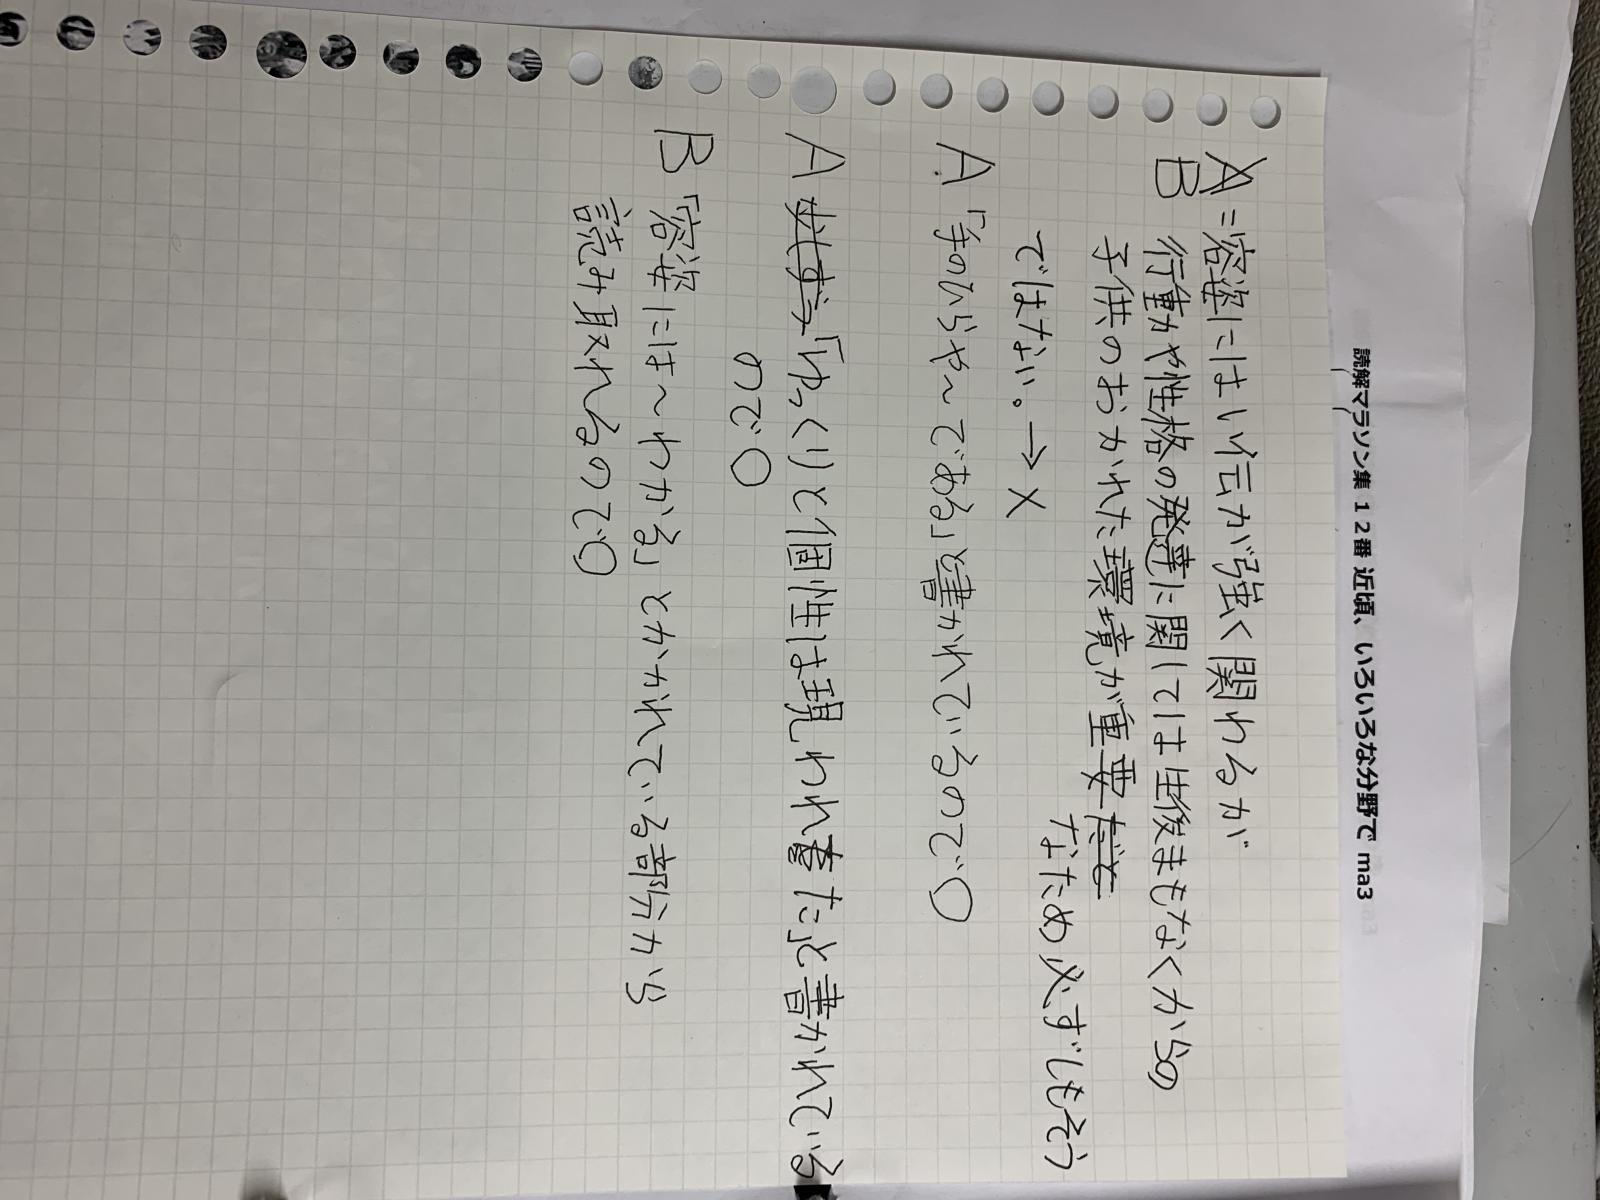 読解マラソン集 12番 近頃、いろいろな分野で ma3
A:容姿にはい伝が強く関わるが
B 行動や性格の発達に関しては生後まもなくからの
子供のおかれた環境が重要だと
なため必ずしもそう
ではない。→×
A「手のひらや〜である」と書かれているので○
A 「ゆっくりと個性は現われ来た」と書かれている
ので○
B「容姿には〜わかる」とかかれている部分から
読み取れるので○